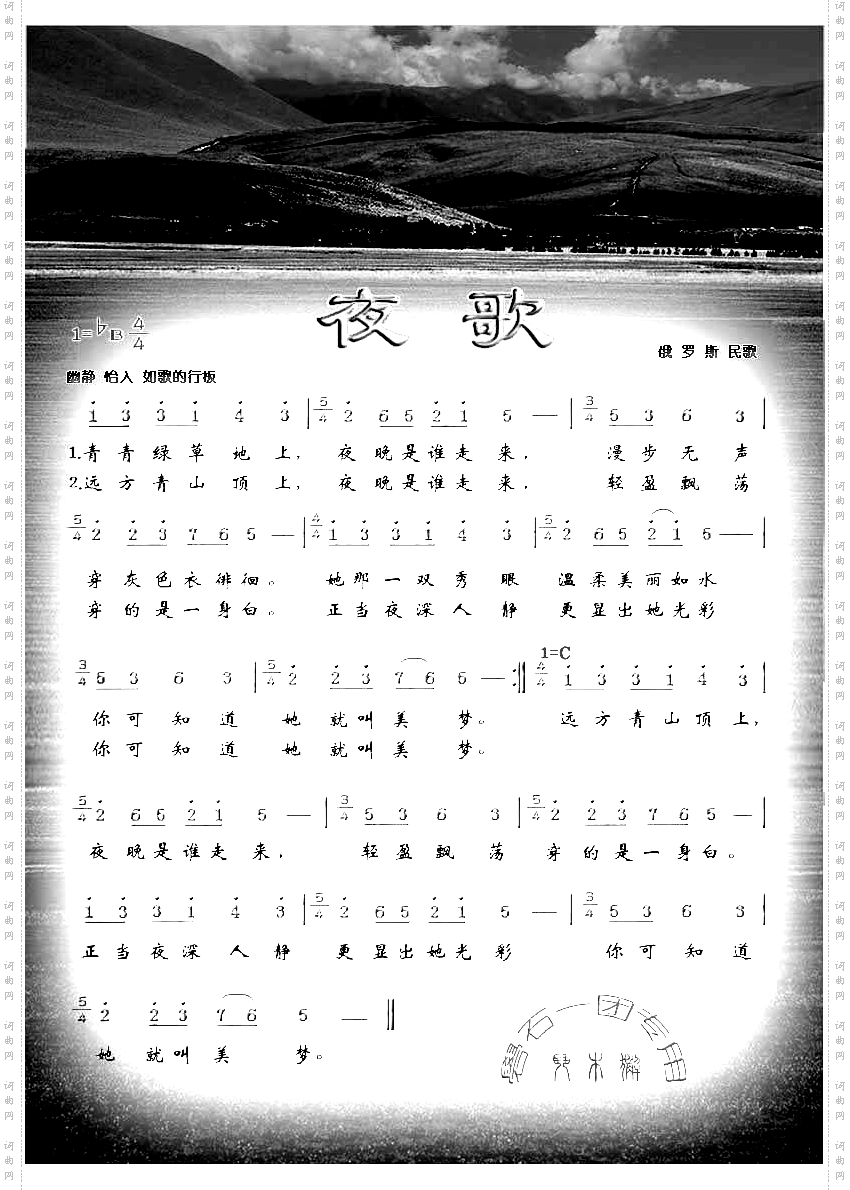 夜 歌
1=♭B 4/4
俄 罗 斯 民歌
幽静 怡人 如歌的行板
1̇ 3̇ 3̇ 1̇ 4̇ 3̇ | 5/4 2̇ 6 5 2̇ 1̇ 5 — | 3/4 5 3 6 3 |
1.青 青 绿 草 地 上, 夜 晚 是 谁 走 来, 漫 步 无 声
2.远 方 青 山 顶 上, 夜 晚 是 谁 走 来, 轻 盈 飘 荡
5/4 2̇ 2̇ 3̇ 7 6 5 — | 4/4 1̇ 3̇ 3̇ 1̇ 4̇ 3̇ | 5/4 2̇ 6 5 2̇ 1̇ 5 — |
穿 灰 色 衣 徘 徊。 她 那 一 双 秀 眼 温 柔 美 丽 如 水
穿 的 是 一 身 白。 正 当 夜 深 人 静 更 显 出 她 光 彩
3/4 5 3 6 3 | 5/4 2̇ 2̇ 3̇ 7 6 5 — :‖ 1=C 4/4 1̇ 3̇ 3̇ 1̇ 4̇ 3̇ |
你 可 知 道 她 就 叫 美 梦。 远 方 青 山 顶 上,
你 可 知 道 她 就 叫 美 梦。
5/4 2̇ 6 5 2̇ 1̇ 5 — | 3/4 5 3 6 3 | 5/4 2̇ 2̇ 3̇ 7 6 5 — |
夜 晚 是 谁 走 来, 轻 盈 飘 荡 穿 的 是 一 身 白。
1̇ 3̇ 3̇ 1̇ 4̇ 3̇ | 5/4 2̇ 6 5 2̇ 1̇ 5 — | 3/4 5 3 6 3 |
正 当 夜 深 人 静 更 显 出 她 光 彩 你 可 知 道
5/4 2̇ 2̇ 3̇ 7 6 5 — ‖
她 就 叫 美 梦。
词曲网